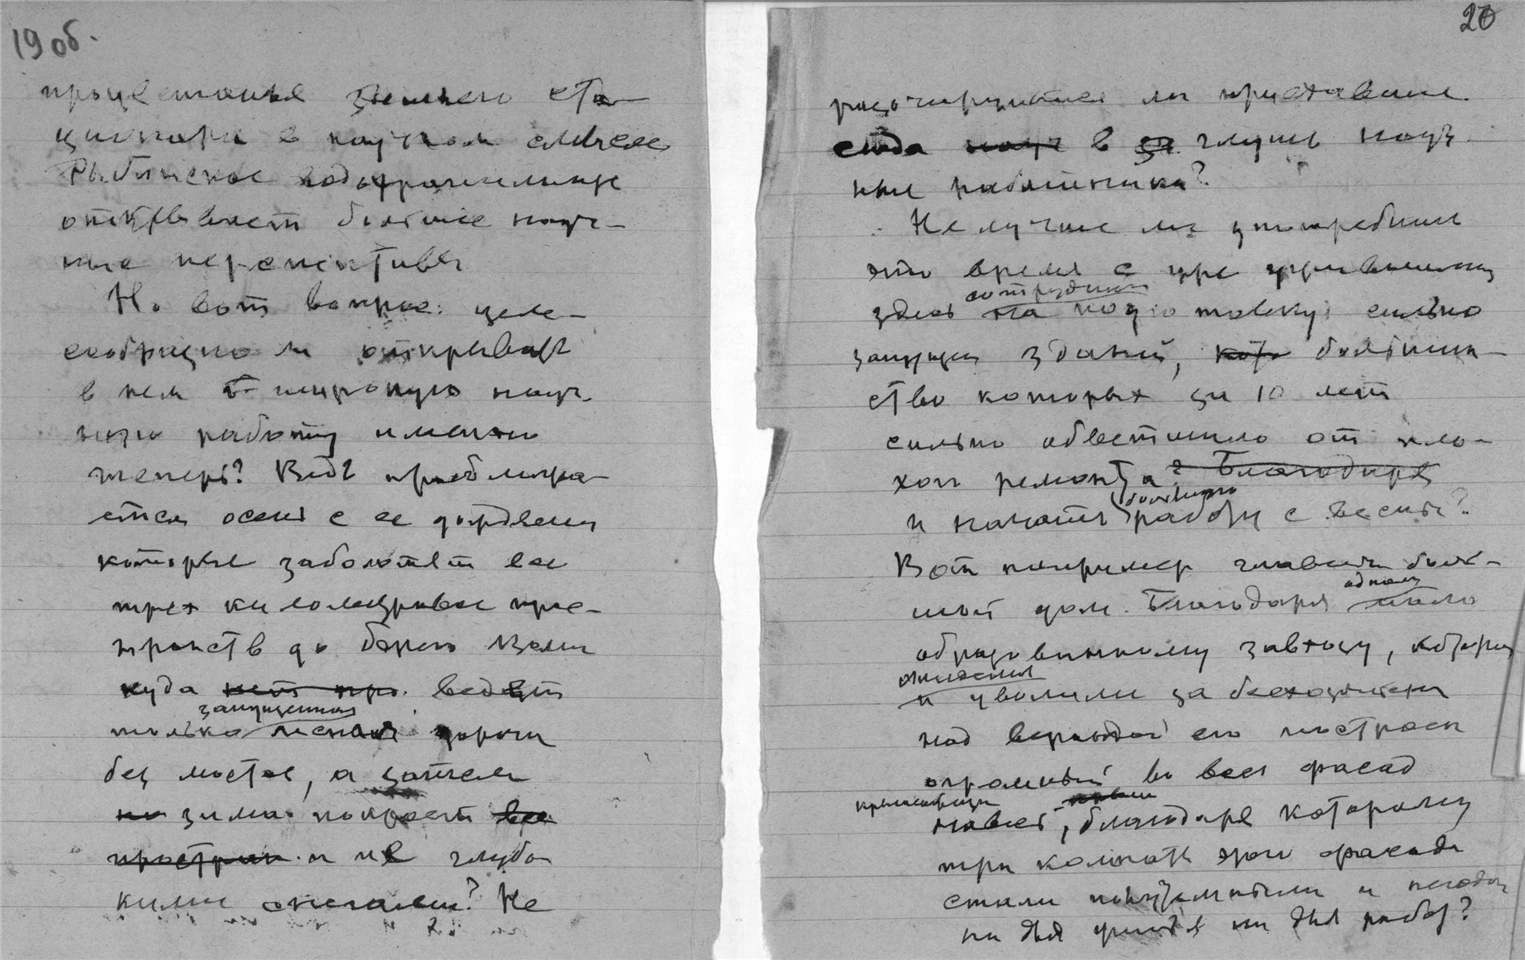 19 об.
процветанья этого ста-
ционара в научном смысле
Рыбинское водохранилище
открывает большие науч-
ные перспективы
Но вот вопрос: целе-
сообразно ли открывать
в нем широкую науч-
ную работу именно
теперь? Ведь приближа-
ется осень с ее дождями
которые заболотят все
трех километровое прос-
транств до Борка
куда нет про. ведут
запущенная
только лесная дороги
без мостов, а затем
но зима покроет все
простран. и не глубо
кими снегами? Не
20
разочаруются ли приехавшие
сюда науч в глушь науч
ные работники?
Не лучше ли употребить
это время с уже
сотрудник
здесь на подготовку сильно
запущен зданий, кото большин-
ство которых за 10 лет
сильно обветшало от пло-
хого ремонта Благодаря
и начать работу с весны?
Вот например главный боль-
одному
шой дом. Благодаря мало
образованному завхозу, которого
и уволили за
над верандой его построен
огромный во весь фасад
навес, благодаря которому
три комнаты этого фасада
стали полутемными и негодны
ни для жилья ни для работ?